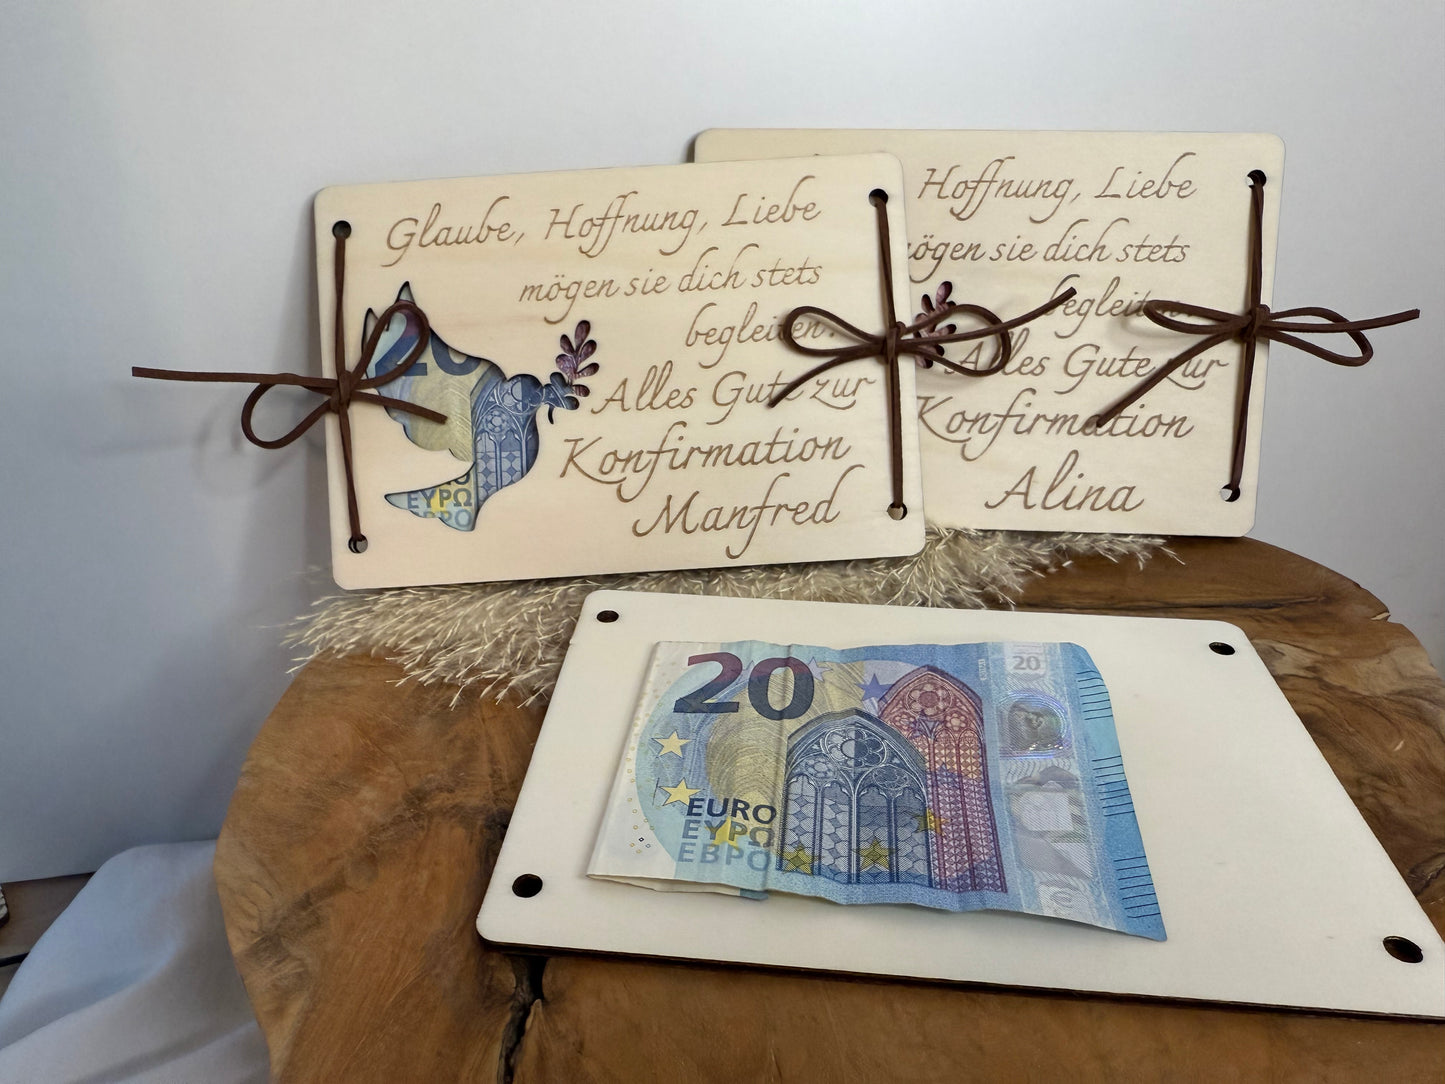 Glaube, Hoffnung, Liebe
mögen sie dich stets
begleiten.
Alles Gute zur
Konfirmation
Manfred
20
ΕΥΡΩ
Hoffnung, Liebe
mögen sie dich stets
begleiten.
Alles Gute zur
Konfirmation
Alina
20
20
EURO
ΕΥΡΩ
ЕВРО